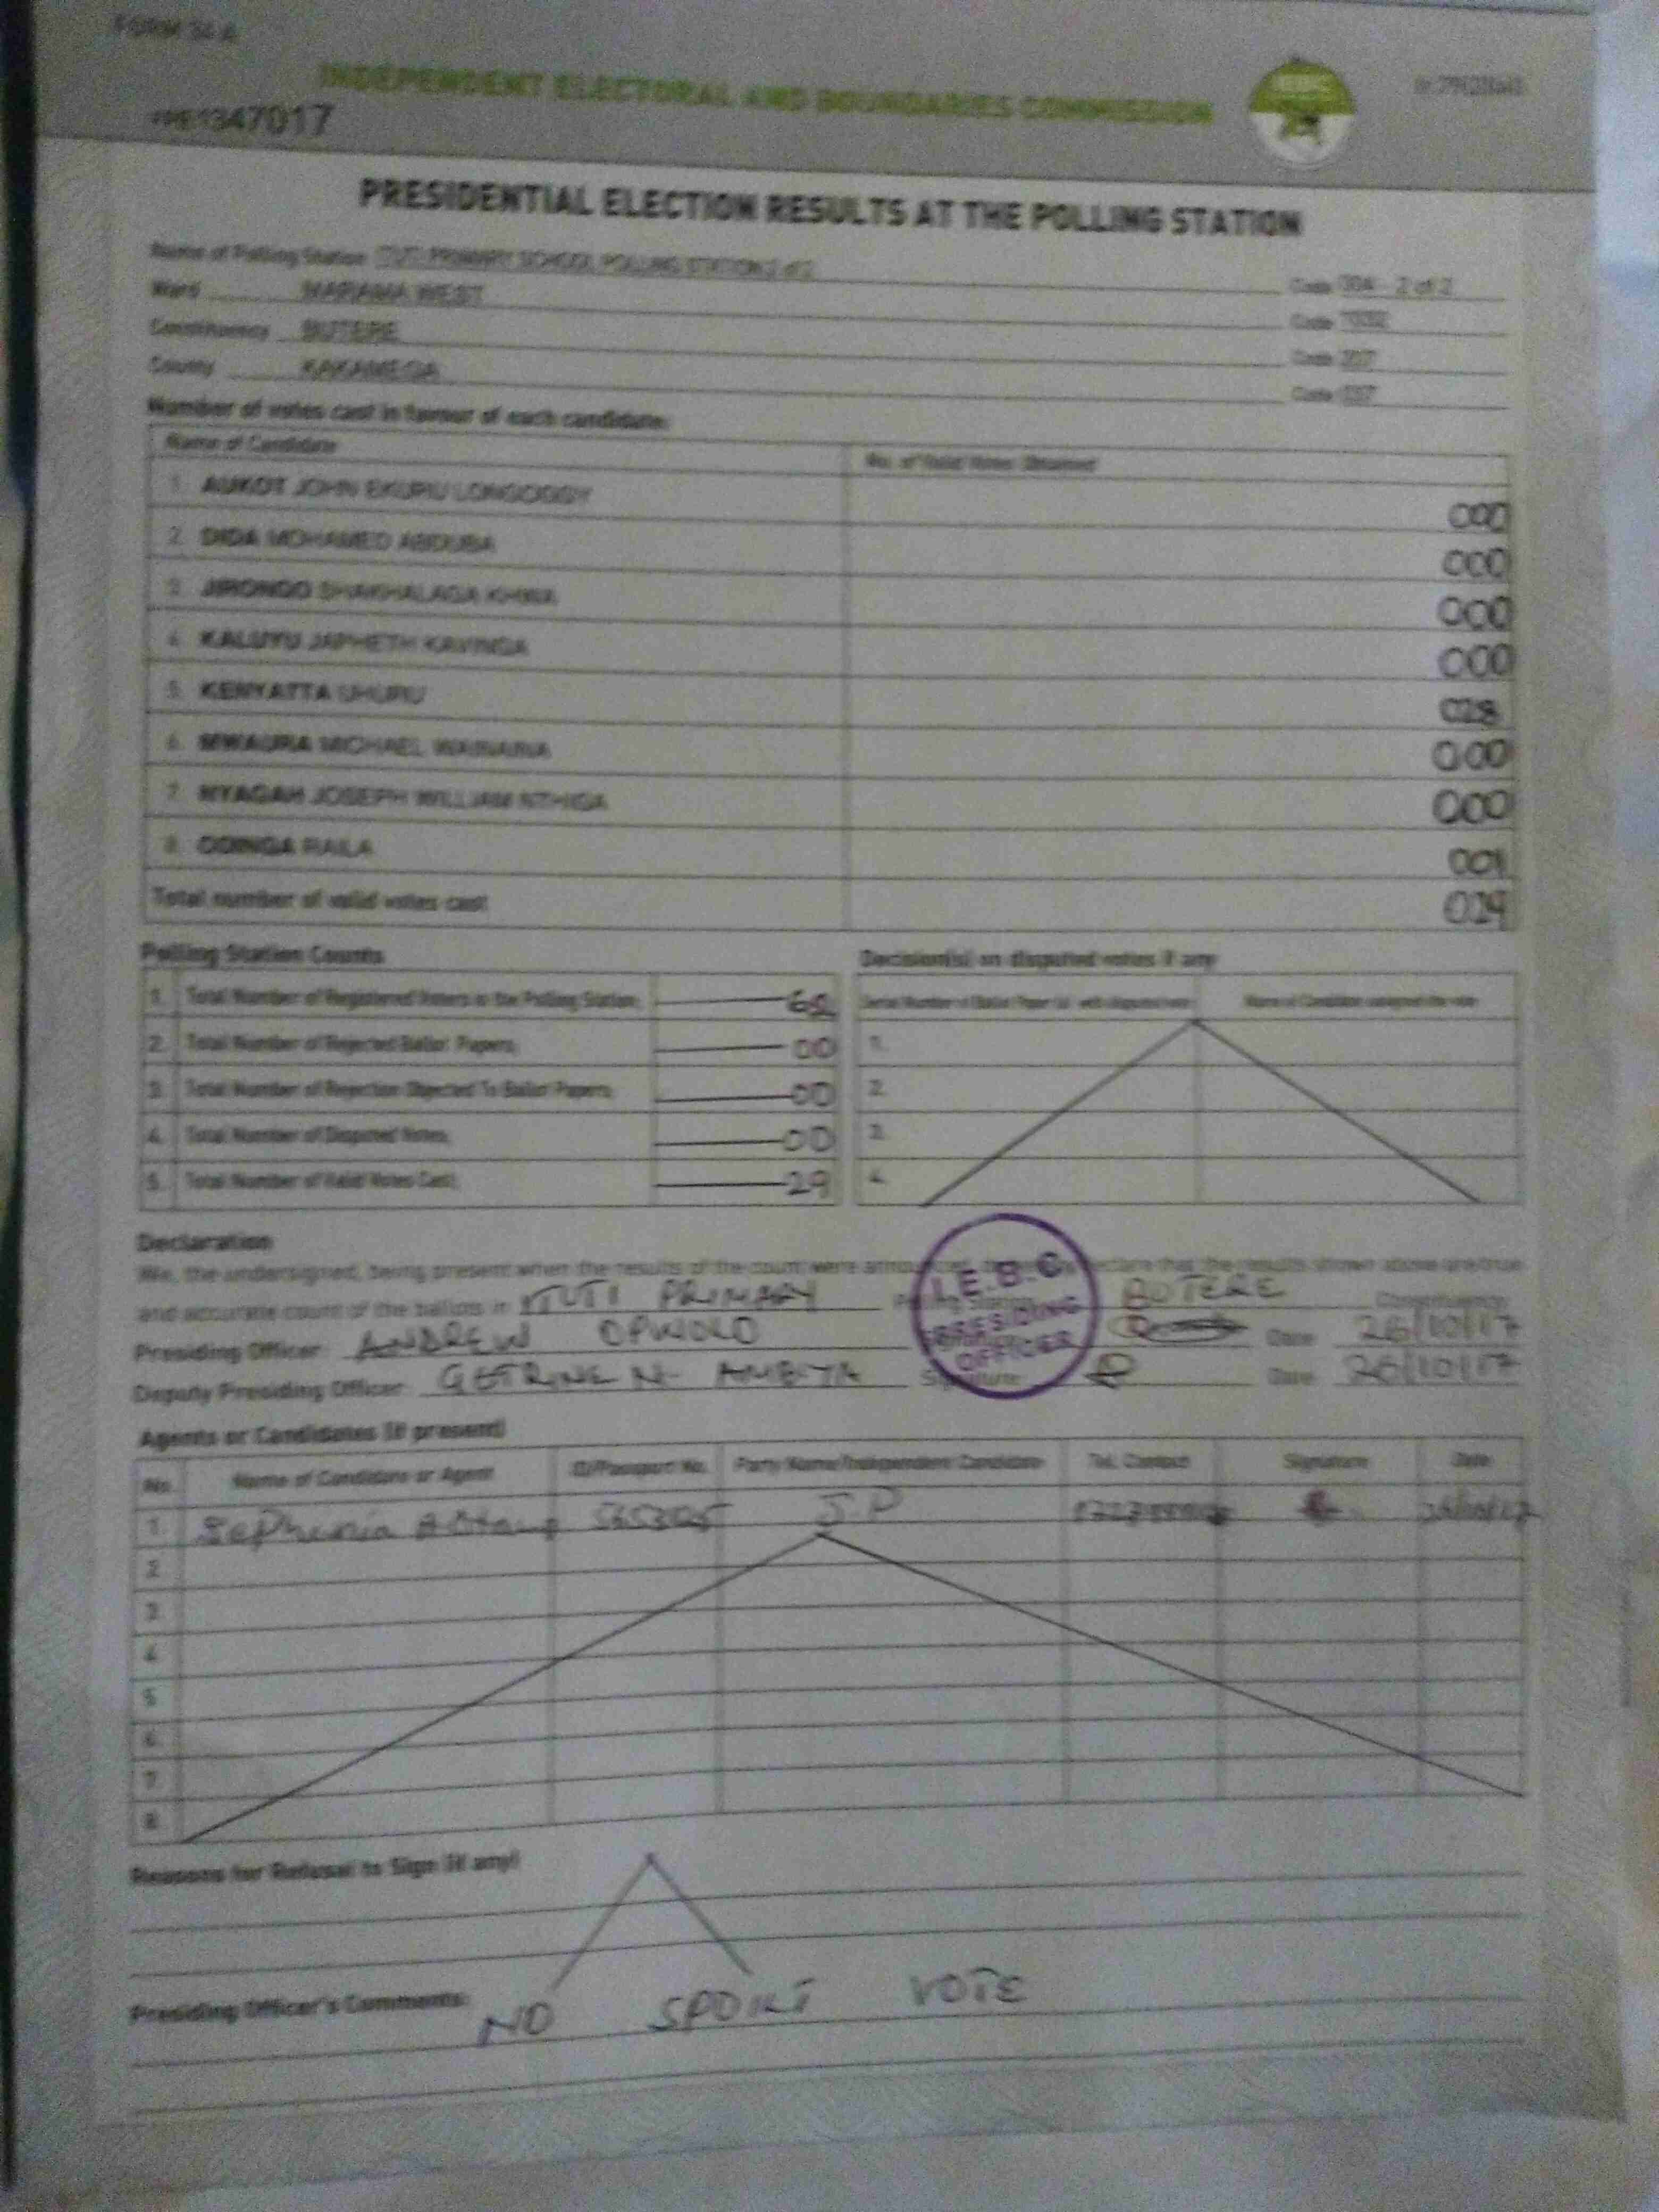 FORM 34 A
INDEPENDENT ELECTORAL AND BOUNDARIES COMMISSION
1347017
PRESIDENTIAL ELECTION RESULTS AT THE POLLING STATION
Name of Polling Station ITUTI PRIMARY SCHOOL POLLING STATION 2 of 2 Code 004 - 2 of 2
Ward MARAMA WEST Code
Constituency BUTERE Code 207
County KAKAMEGA Code 037
Number of votes cast in favour of each candidate:
Name of Candidate No. of Valid Votes Obtained
1. AUKOT JOHN EKURU LONGOGGY 000
2. DIDA MOHAMED ABDUBA 000
3. JIRONGO SHAKHALAGA KHWA 000
4. KALUYU JAPHETH KAVINGA 000
5. KENYATTA UHURU 028
6. MWAURA MICHAEL WAINAINA 000
7. NYAGAH JOSEPH WILLIAM NTHIGA 000
8. ODINGA RAILA 001
Total number of valid votes cast 029
Polling Station Counts
1. Total Number of Registered Voters in the Polling Station
2. Total Number of Rejected Ballot Papers 00
3. Total Number of Rejection Objected To Ballot Papers 00
4. Total Number of Disputed Votes 00
5. Total Number of Valid Votes Cast 29
Decision(s) on disputed votes if any
Serial Number of Ballot Paper (s) with disputed vote Name of Candidate assigned the vote
1.
2.
3.
4.
Declaration
We, the undersigned, being present when the results of the count were announced, declare that the results shown above are true
and accurate count of the ballots in ITUTI PRIMARY Polling Station BUTERE Constituency
Presiding Officer: ANDREW OPWOLO Date 26/10/17
Deputy Presiding Officer: GETRINE N. AMBIYA Signature Date 26/10/17
I.E.B.C
PRESIDING
OFFICER
Agents or Candidates (if present)
No. Name of Candidate or Agent ID/Passport No. Party Name/Independent Candidate Tel. Contact Signature Date
1. J.P 26/10/17
2.
3.
4
5
6.
7.
8.
Reasons for Refusal to Sign (if any)
Presiding Officer's Comments: NO SPOILT VOTE